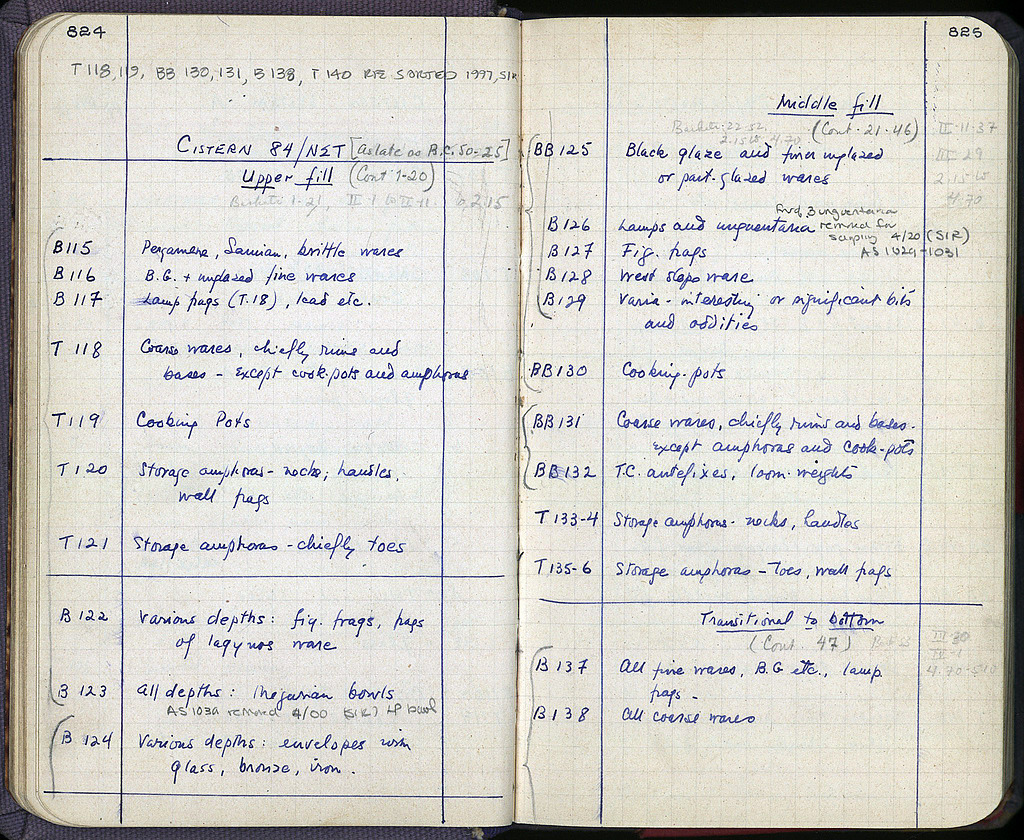 824
T 118, 119, BB 130, 131, B 138, T 140 RE SORTED 1997, SIR
CISTERN 84/NET [as late as B.C. 50-25]
Upper fill (Cont 1-20)
Baskets 1-21, III-1 to III-11 2.15
B115 Pergamene, Samian, brittle wares
B116 B.G. + unglazed fine wares
B117 Lamp frags (T.18), lead etc.
T 118 Coarse wares, chiefly rims and
bases - except cook-pots and amphoras
T119 Cooking Pots
T120 Storage amphoras - necks; handles.
wall frags
T121 Storage amphoras - chiefly toes
B 122 Various depths: fig. frags, frags
of lagynos ware
B 123 All depths: Megarian bowls
AS 103a removed 4/00 (SIR) bowl
B 124 Various depths: envelopes with
glass, bronze, iron.
825
Middle fill
(Cont. 21-46)
Baskets 22-52, III-11-37
2.15 to 4.70
BB 125 Black glaze and finer unglazed
or part-glazed wares
III 29
2.15 to
4.70
B126 Lamps and unguentaria
3 unguentaria
removed for
sampling 4/20 (SIR)
AS 1029-1031
B127 Fig. frags
B128 West slope ware
B129 Varia - interesting or significant bits
and oddities
BB130 Cooking-pots
BB131 Coarse wares, chiefly rims and bases -
except amphoras and cook-pots
BB132 T.C. antefixes, loom-weights
T 133-4 Storage amphoras - necks, handles
T135-6 Storage amphoras - Toes, wall frags
Transitional to bottom
(Cont. 47)
III-30
B 137 All fine wares, B.G etc., lamp
frags -
B138 All coarse wares